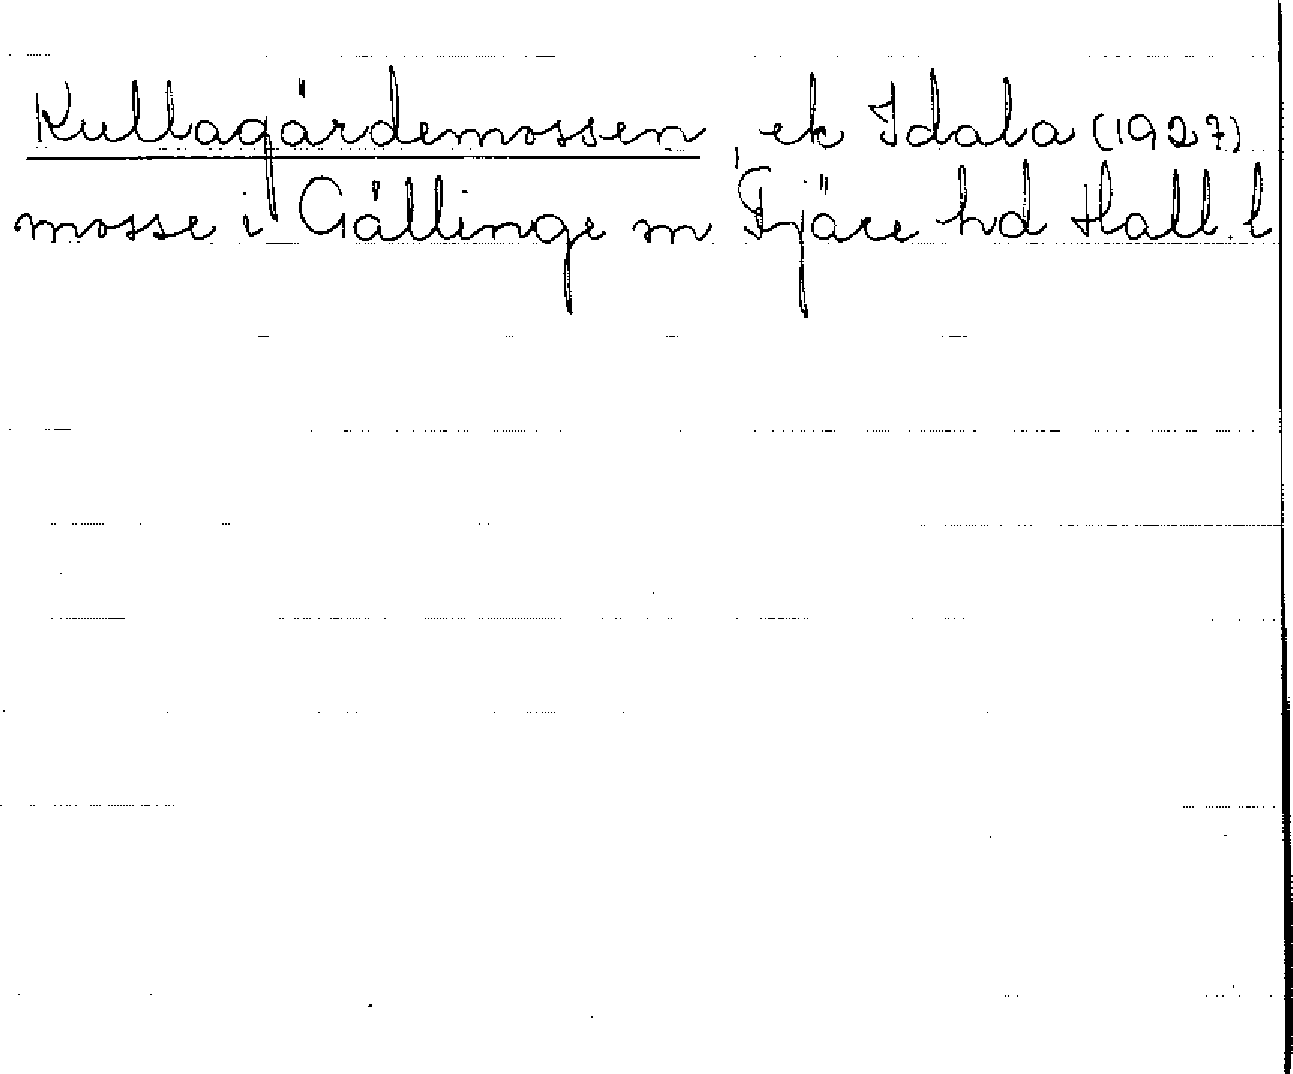 Kullagärdemossen, ek Idala (1927)
mosse i Gällinge sn Fjäre hd Hall. l